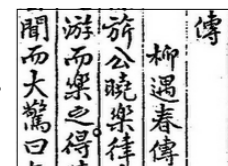 傳
柳遇春傳
斾公曉樂律
游而樂之得
聞而大驚曰